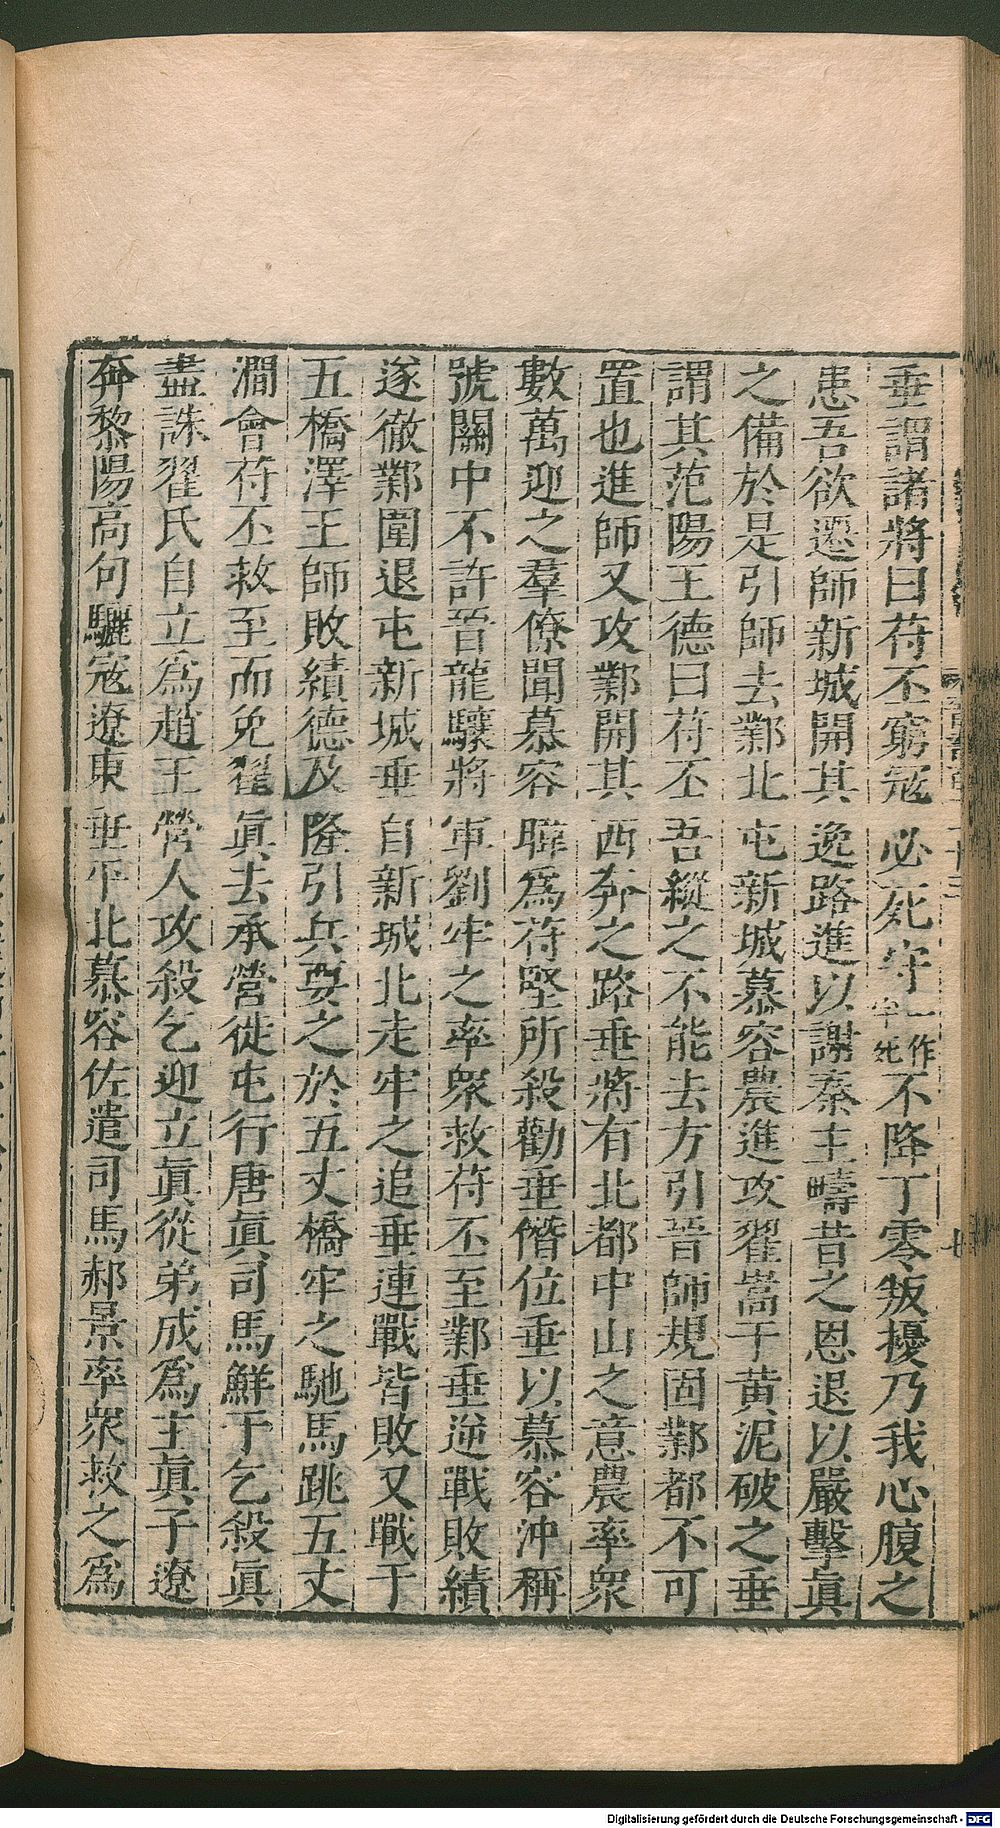 垂謂諸將曰苻丕窮寇必死守一作牢死不降丁零叛擾乃我心腹之
患吾欲還師新城開其逸路進以謝秦主疇昔之恩退以嚴擊眞
之備於是引師去鄴北屯新城慕容農進攻翟嵩于黃泥破之垂
謂其范陽王德曰苻丕吾縱之不能去方引晉師規固鄴都不可
置也進師又攻鄴開其西奔之路垂將有北都中山之意農率衆
數萬迎之羣僚聞慕容暐爲苻堅所殺勸垂僭位垂以慕容沖稱
號關中不許晉龍驤將軍劉牢之率衆救苻丕至鄴垂逆戰敗績
遂徹鄴圍退屯新城垂自新城北走牢之追垂連戰皆敗又戰于
五橋澤王師敗績德及隆引兵要之於五丈橋牢之馳馬跳五丈
澗會苻丕救至而免翟眞去承營徙屯行唐眞司馬鮮于乞殺眞
盡誅翟氏自立爲趙王營人攻殺乞迎立眞從弟成爲主眞子遼
奔黎陽高句驪寇遼東垂平北慕容佐遣司馬郝景率衆救之爲
Digitalisierung gefördert durch die Deutsche Forschungsgemeinschaft - DFG